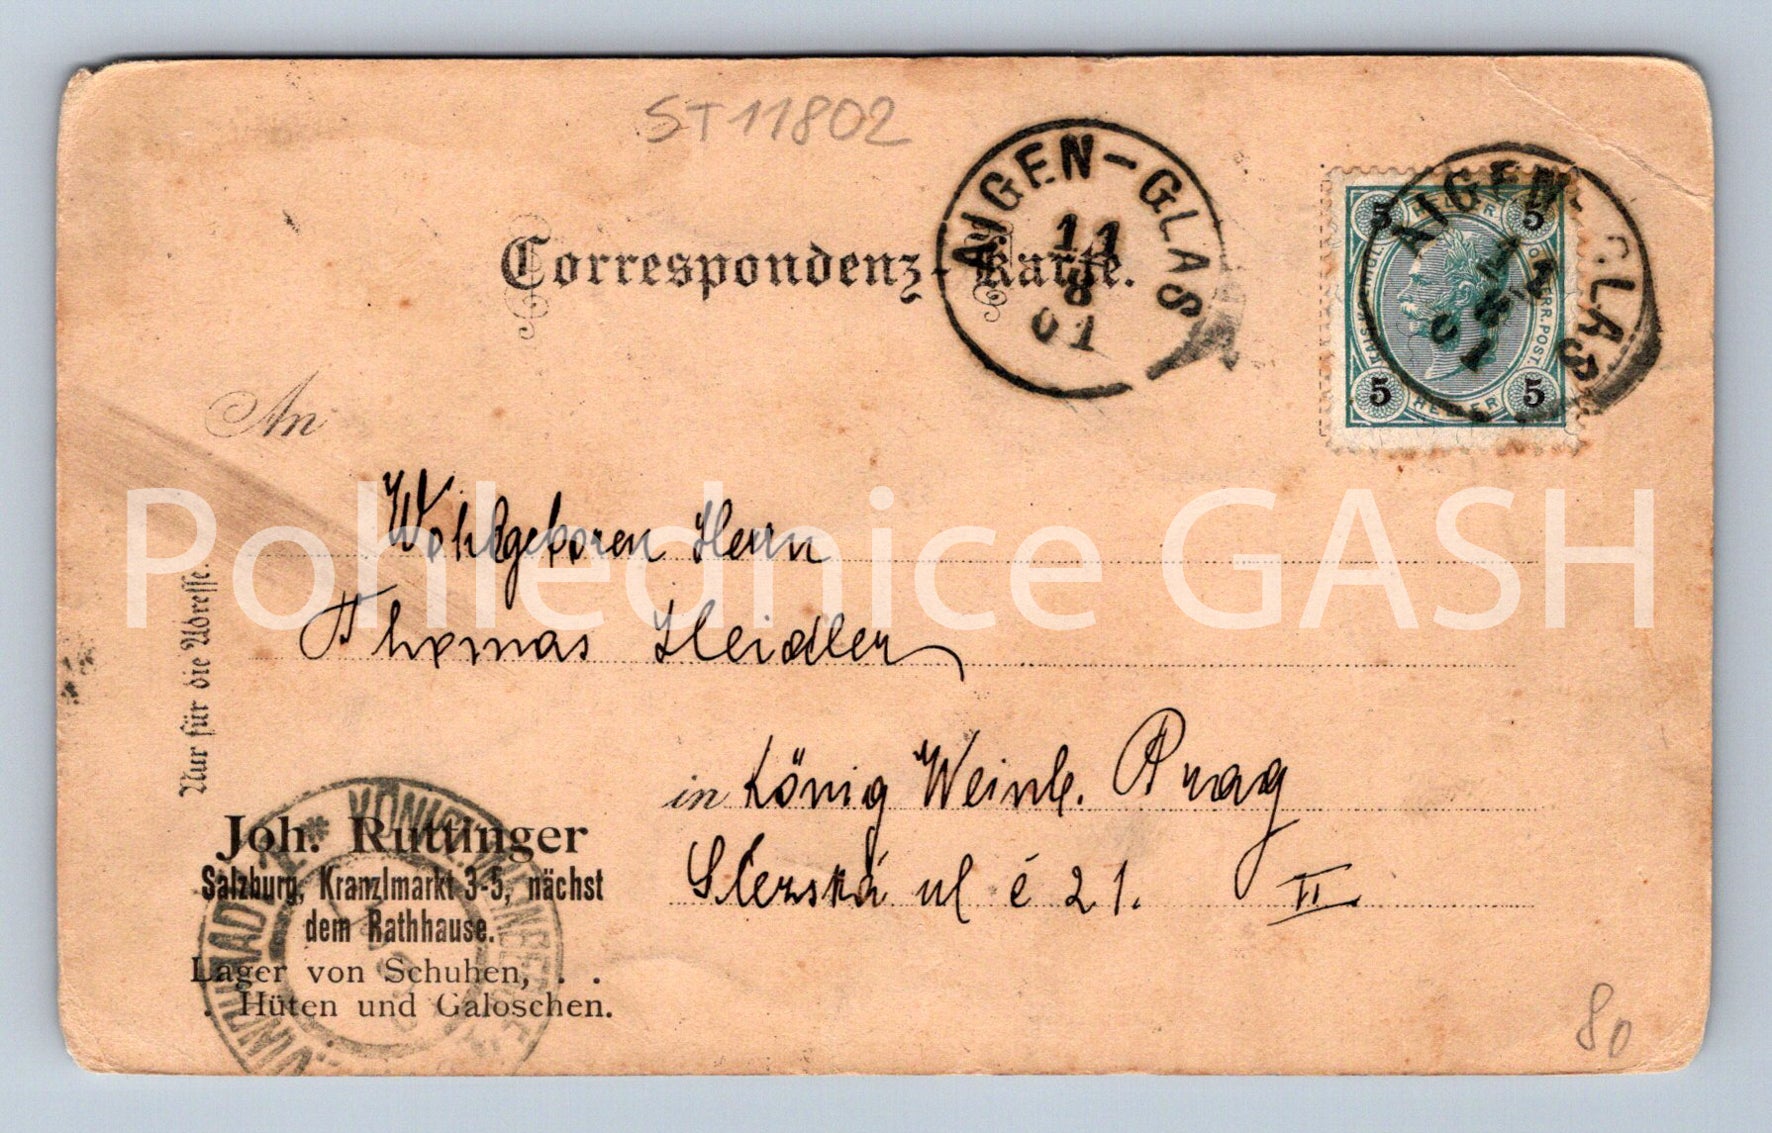 ST11802
AIGEN-GLAS
11
8
01
Correspondenz-Karte.
5 HELLER 5
AIGEN-GLAS
5 HELLER 5
An
Pohlednice GASH
Wohlgeboren Herrn
Thomas Heidler
Nur für die Adresse.
in König Weinb. Prag
Slezská ul č 21. II.
Joh. Ruttinger
Salzburg, Kranzlmarkt 3-5, nächst
dem Rathhause.
Lager von Schuhen, . .
. Hüten und Galoschen.
80